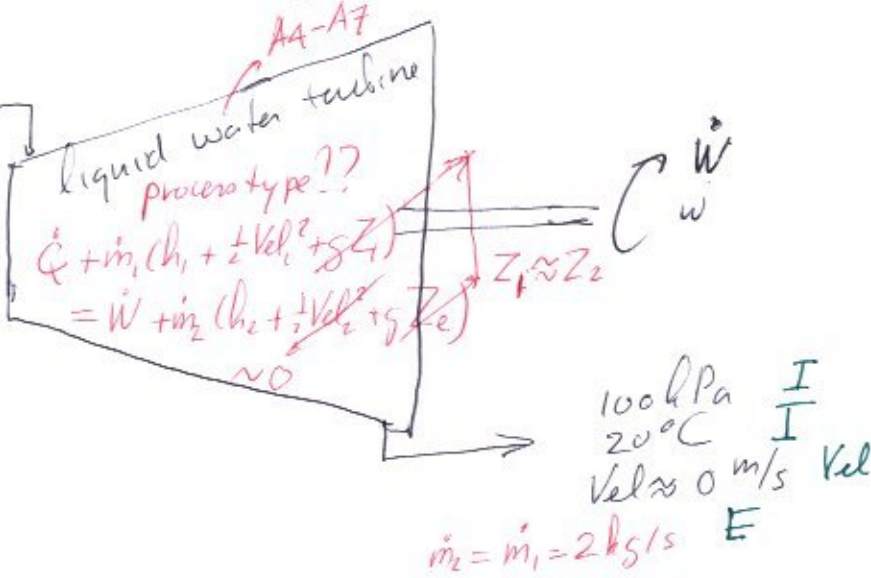 A4-A7
liquid water turbine
process type??
Q̇ + ṁ₁(h₁ + ½Vel₁² + gZ₁)
= Ẇ + ṁ₂(h₂ + ½Vel₂² + gZe)
~0
Z₁≈Z₂
Ẇ
w
100kPa I
20°C I
Vel≈0 m/s Vel
ṁ₂ = ṁ₁ = 2kg/s E